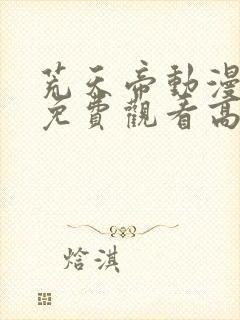 荒天帝動漫
免費觀看高
焓淇